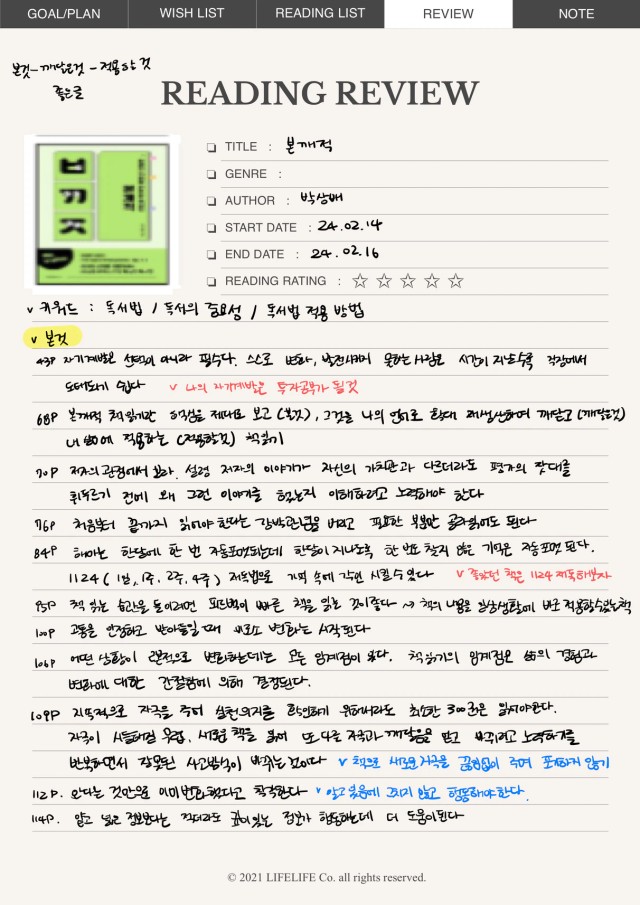 GOAL/PLAN WISH LIST READING LIST REVIEW NOTE
본것 - 깨달은것 - 적용할 것
좋은글
READING REVIEW
TITLE : 본깨적
GENRE :
AUTHOR : 박상배
START DATE : 24.02.14
END DATE : 24.02.16
READING RATING : ☆ ☆ ☆ ☆ ☆
v 키워드 : 독서법 / 독서의 중요성 / 독서법 적용 방법
v 본것
43P 자기계발은 선택이 아니라 필수다. 스스로 변화, 발전시키지 못하는 사람은 시간이 지날수록 직장에서
도태되기 쉽다 v 나의 자기계발은 투자공부가 될것
68P 본깨적 책읽기란 핵심을 제대로 보고 (본것), 그것을 나의 언어로 확대 재생산하여 깨닫고 (깨달은것)
내 삶에 적용하는 (적용할것) 책읽기
70P 저자의 관점에서 보라. 설령 저자의 이야기가 자신의 가치관과 다르더라도 평가의 잣대를
휘두르기 전에 왜 그런 이야기를 했는지 이해하려고 노력해야 한다
76P 처음부터 끝까지 읽어야 한다는 강박관념을 버리고 필요한 부분만 골라읽어도 된다
84P 해마는 한달에 한 번 자동포맷되는데 한달이 지나도록 한 번도 찾지 않은 기억은 자동포맷 된다.
1124 (1일, 1주, 2주, 4주) 재독법으로 기억 속에 각인 시킬수 있다 v 좋았던 책은 1124 재독해보자
95P 책 읽는 습관을 들이려면 피드백이 빠른 책을 읽는 것이 좋다 → 책의 내용을 일상생활에 바로 적용할수있는책
100P 고통을 인정하고 받아들일 때 비로소 변화는 시작된다
106P 어떤 상황이 근본적으로 변화하는데는 모든 임계점이 있다. 책읽기의 임계점은 삶의 경험과
변화에 대한 간절함에 의해 결정된다.
109P 지속적으로 자극을 주어 실천의지를 확인하기 위해서라도 최소한 300권은 읽어야한다.
자극이 시들해질 무렵, 새로운 책을 읽어 또 다른 자극과 깨달음을 받고 바뀌려고 노력하기를
반복하면서 잘못된 사고방식이 바뀌는 것이다 v 책으로 새로운 자극을 끊임없이 주며 포기하지 않기
112P. 안다는 것만으로 이미 변화했다고 착각한다 v 알고있음에 그치지 않고 행동해야한다.
114P. 얕고 넓은 정보보다는 적더라도 깊이있는 정보가 행동하는데 더 도움이된다
© 2021 LIFELIFE Co. all rights reserved.